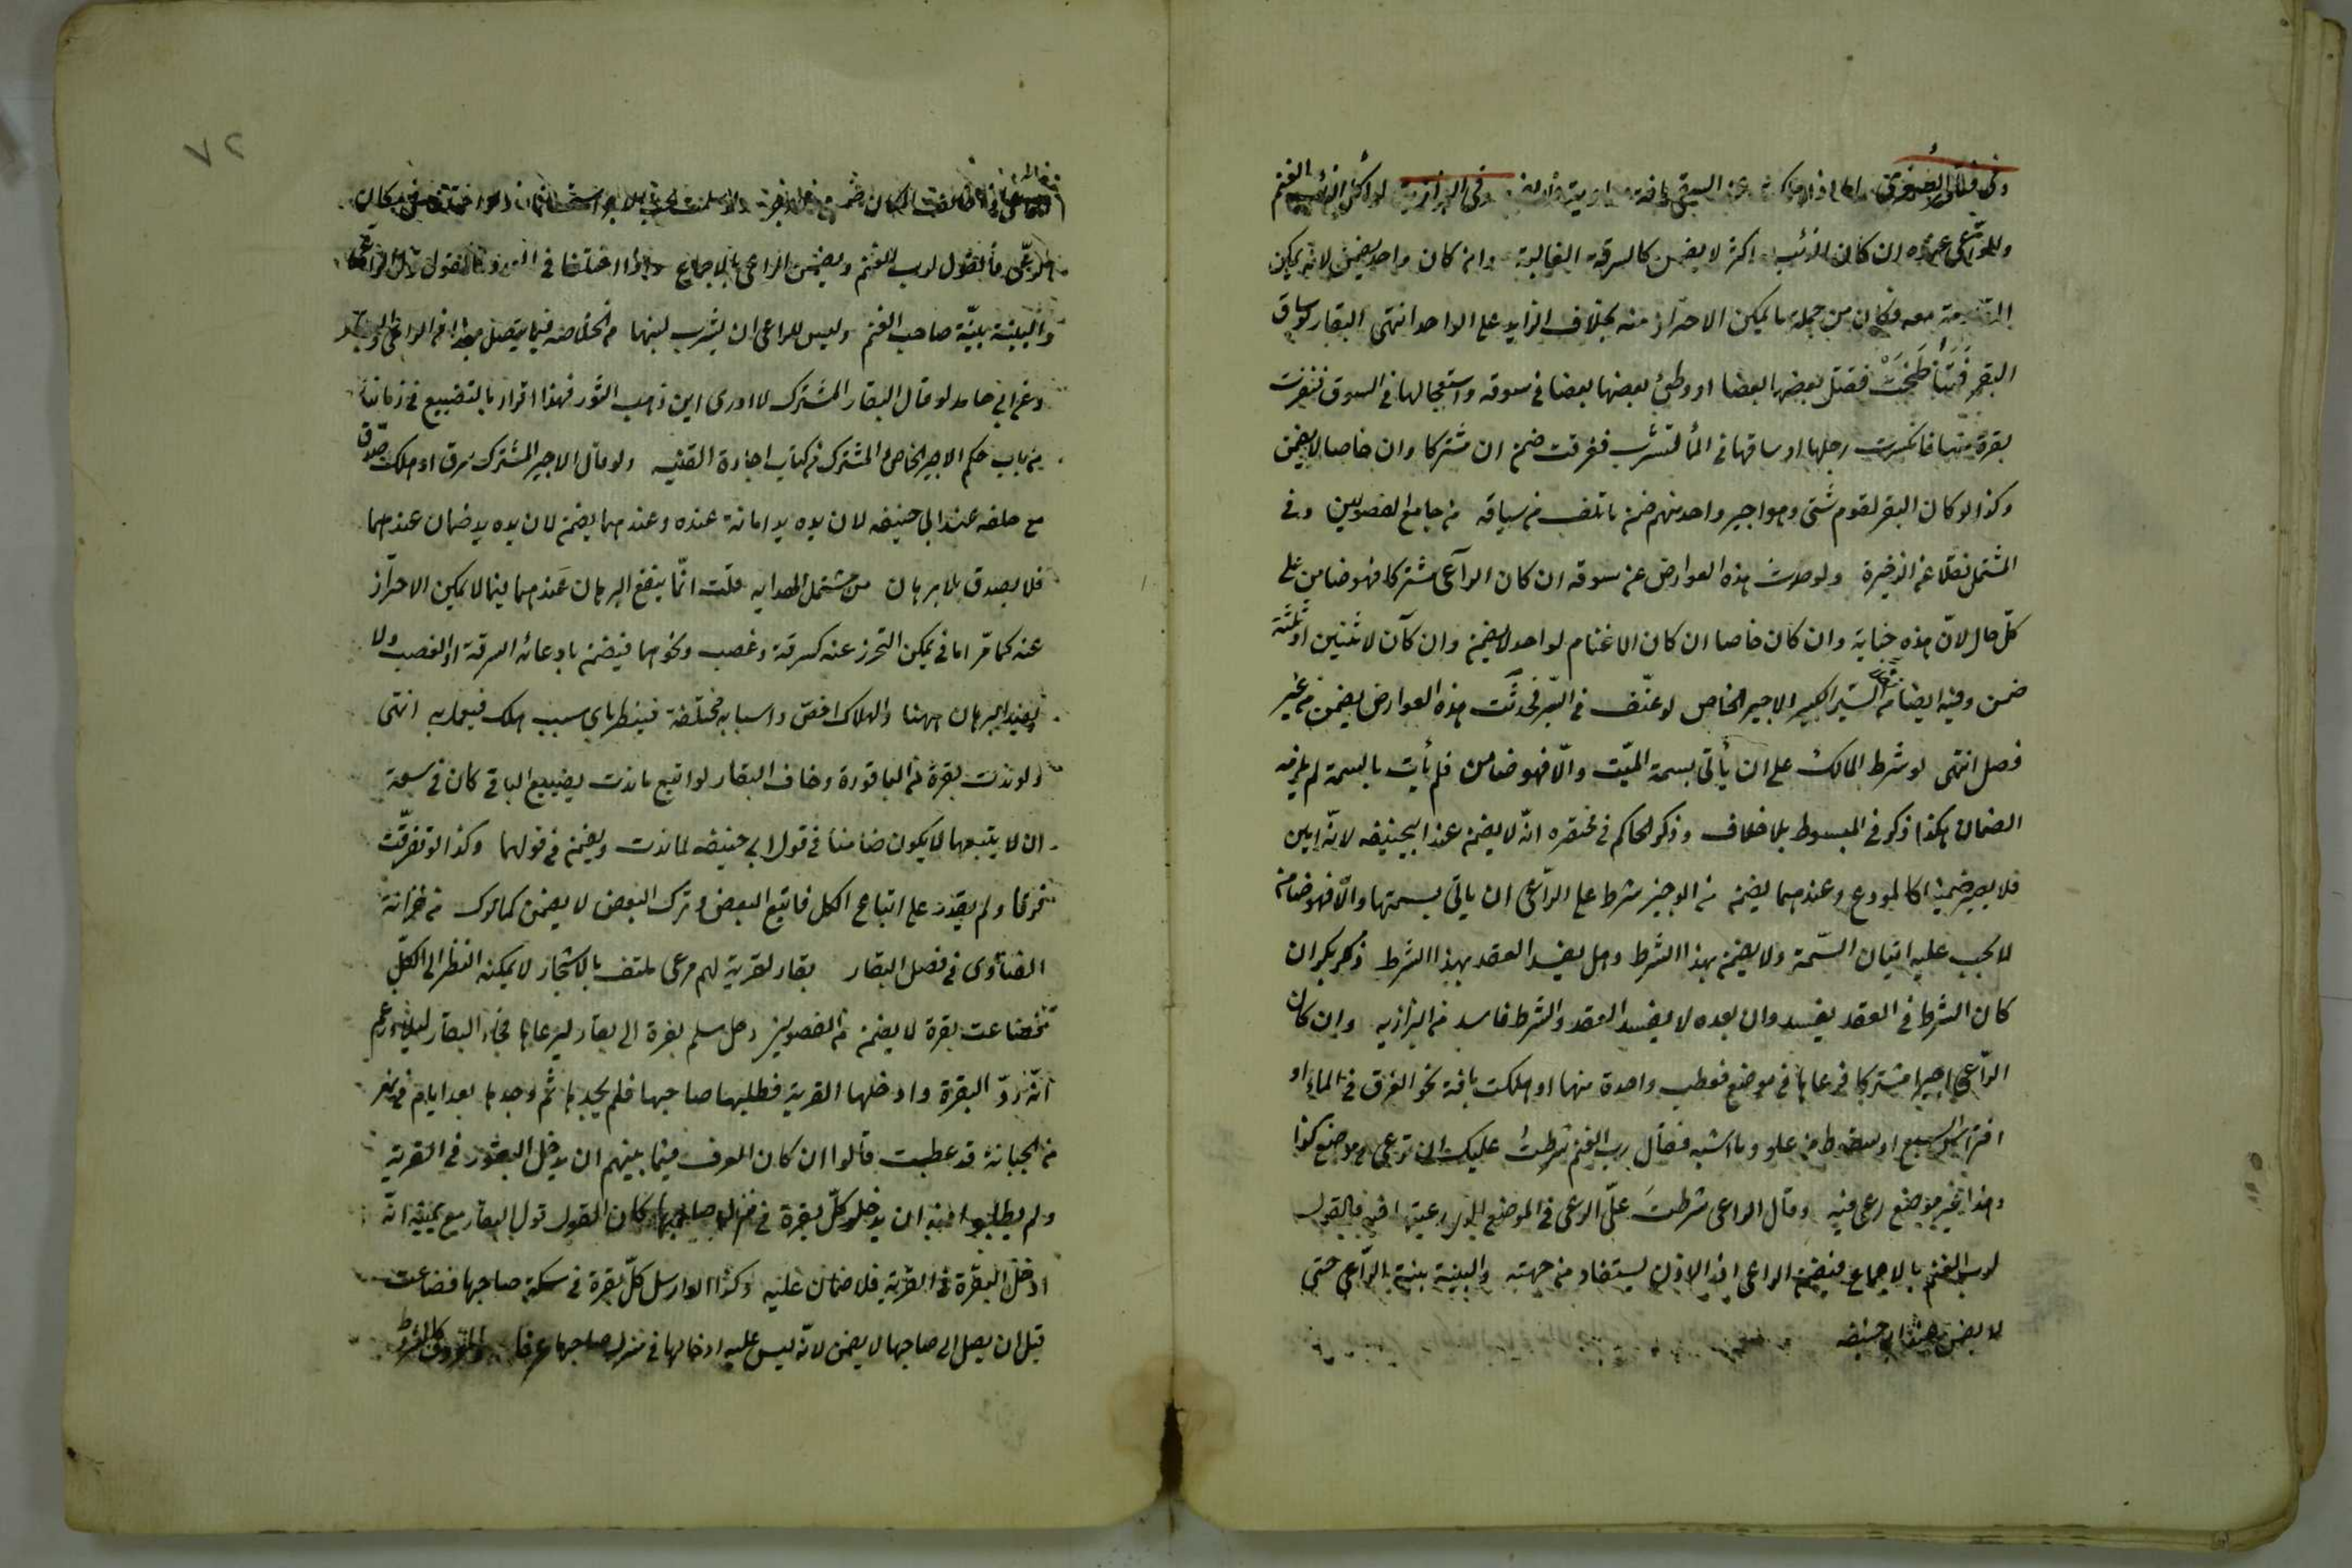 وفي فتاوى الصغرى وفي البزازية لو أكل الذئب الغنم
والراعي عنده ان كان الذئب اكثر لا يضمن كالسرقة الغالبة وان كان واحد يضمن لانه يمكن
معه فكان من جملة ما يمكن الاحتراز منه بخلاف الزايد على الواحد انتهى البقار لو ساق
البقر فتناطحت فقتل بعضها بعضا او وطئ بعضها بعضا في سوقه واستعجالها في السوق فنفرت
بقرة منها فانكسرت رجلها او ساقها في الماء لتشرب فغرقت ضمن ان مشتركا وان خاصا لا يضمن
وكذا لو كان البقر لقوم شتى وهو اجير واحد منهم ضمن ما تلف من سياقه من جامع الفصولين وفي
المشتمل نقلا عن الذخيرة ولو حدثت هذه العوارض عن سوقه ان كان الراعي مشتركا فهو ضامن على
كل حال لان هذه جناية وان كان خاصا ان كان الاغنام لواحد لا يضمن وان كان لاثنين او ثلثة
ضمن وفيه ايضا من السير الكبير الاجير الخاص لو عنف في السير فحدثت هذه العوارض يضمن من غير
فصل انتهى لو شرط المالك على ان يأتي بسمة الميت والا فهو ضامن فلم يأت بالسمة لم يلزمه
الضمان هكذا ذكر في المبسوط بلا خلاف وذكر الحاكم في مختصره انه لا يضمن عند ابيحنيفه لانه امين
فلا يصير ضمينا كالمودع وعندهما يضمن من الوجيز شرط على الراعي ان ياتي بسمتها والا فهو ضامن
لا يجب عليه اتيان السمة ولا يضمن بهذا الشرط وهل يفسد العقد بهذا الشرط ذكر بكر ان
كان الشرط في العقد يفسد وان بعده لا يفسد العقد والشرط فاسد من البزازيه وان كان
الراعي اجيرا مشتركا فرعاها في موضع فعطب واحدة منها او هلكت بافة نحو الغرق في الماء او
افتراس السبع او سقوط من علو وما اشبه فقال رب الغنم شرطت عليك ان ترعى في موضع كذا
وهذا غير موضع رعى فيه وقال الراعي شرطت علي الرعي في الموضع الذي رعيتها فيه فالقول
لرب الغنم بالاجماع فيضمن الراعي اذ الاذن يستفاد من جهته والبينة بينة الراعي حتى
لا يضمن عند ابي حنيفه
٧٢
الراعي فالقول لرب الغنم ويضمن الراعي بالاجماع واذا اختلفا في فالقول قول الراعي
والبينة بينة صاحب الغنم وليس للراعي ان يشرب لبنها من الخلاصه فيما يتصل
وعن ابي حامد لو قال البقار المشترك لا ادري اين ذهب الثور فهذا اقرار بالتضييع في زماننا
من باب حكم الاجير الخاص والمشترك من كتاب اجارة القنيه ولو قال الاجير المشترك سرق او هلكت صدق
مع حلفه عند ابي حنيفه لان يده يد امانة عنده وعندهما يضمن لان يده يد ضمان عندهما
فلا يصدق بلا برهان من مشتمل الهدايه قلت انما ينفع البرهان عندهما فيما لا يمكن الاحتراز
عنه كما مر اما في يمكن التحرز عنه كسرقة وغصب ونحوهما فيضمن بادعائه السرقة او الغصب ولا
يفيد البرهان ههنا والهلاك اخص واسبابه مختلفة فينظر باي سبب هلك فيعمل به انتهى
ولو ندت بقرة من الباقورة وخاف البقار لو اتبع ما ندت يضيع الباقي كان في سعة
ان لا يتبعها لا يكون ضامنا في قول ابي حنيفه لما ندت ويضمن في قولهما وكذا لو تفرقت
فرقا ولم يقدر على اتباع الكل فاتبع البعض وترك البعض لا يضمن كما ترك من خزانة
الفتاوى في فصل البقار بقار لقرية لهم مرعى ملتف بالاشجار لا يمكنه النظر الى الكل
فضاعت بقرة لا يضمن من الفصولين رجل سلم بقرة الى بقار ليرعاها فجاء البقار ليلا وزعم
انه رد البقرة وادخلها القرية فطلبها صاحبها فلم يجدها ثم وجدها بعد ايام في نهر
من الجبانة قد عطبت قالوا ان كان العرف فيما بينهم ان يدخل البقور في القرية
ولم يطلبوا منه ان يدخل كل بقرة في منزل صاحبها كان القول قول البقار مع يمينه انه
ادخل البقرة في القرية فلا ضمان عليه وكذا لو ارسل كل بقرة في سكة صاحبها فضاعت
قبل ان يصل الى صاحبها لا يضمن لانه ليس عليه ادخالها في منزل صاحبها عرفا والمعروف كالمشروط